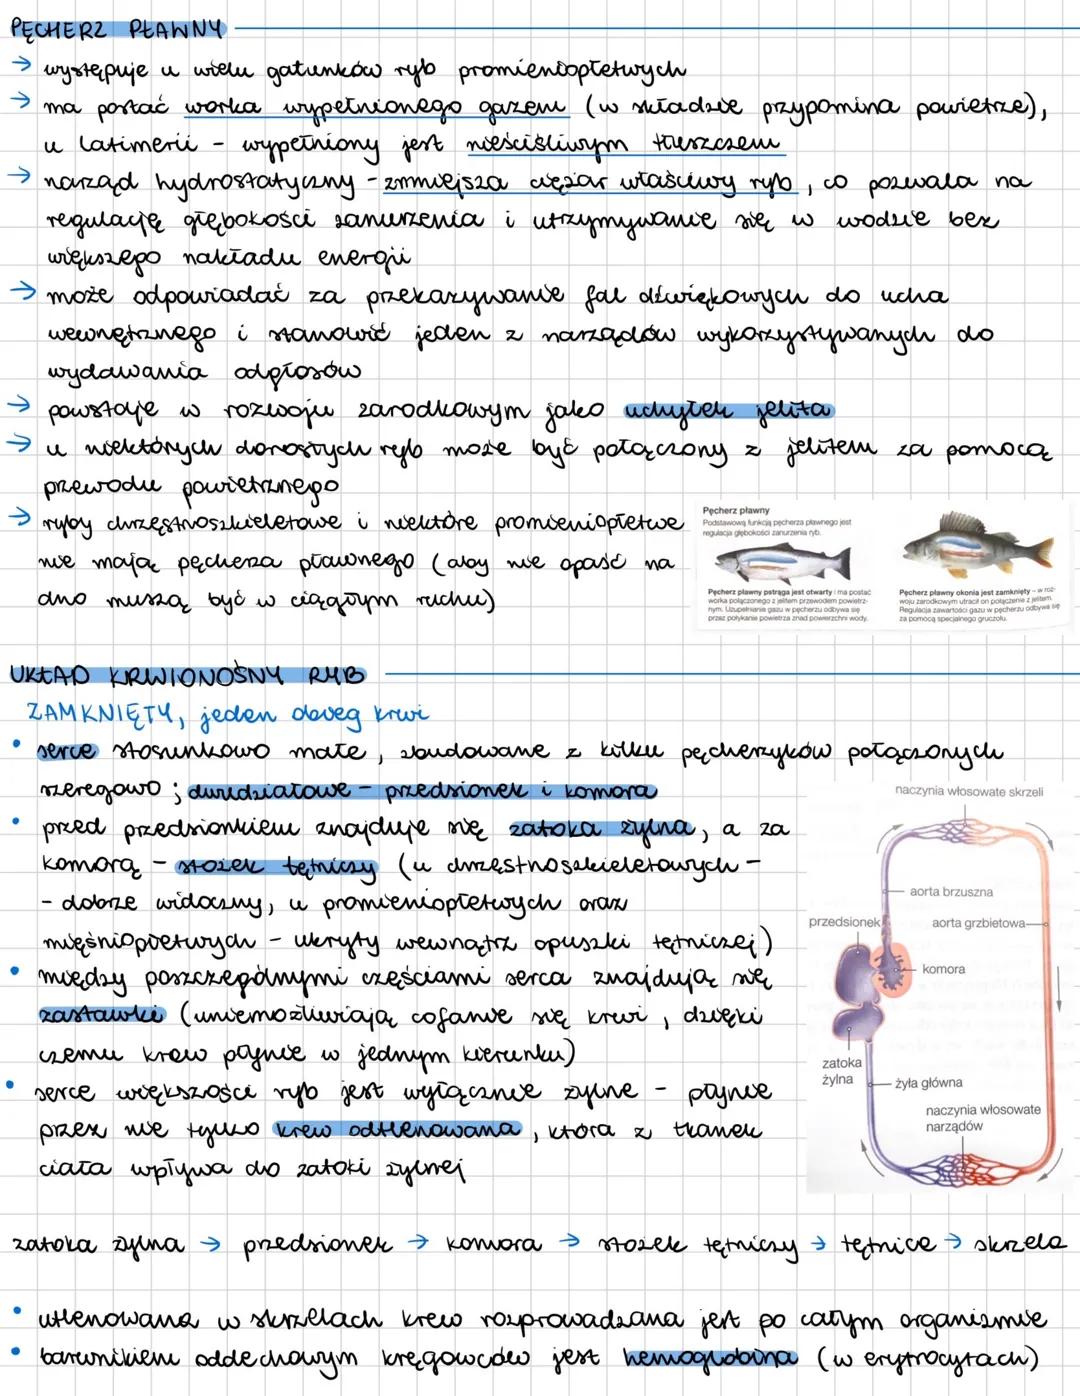 PĘCHERZ PŁAWNY
→ występuje u wielu gatunków ryb promieniopłetwych
→ ma postać worka wypełnionego gazem (w składzie przypomina powietrze),
u latimerii - wypełniony jest nieściśliwym tłuszczem
→ narząd hydrostatyczny - zmniejsza ciężar właściwy ryb, co pozwala na
regulację głębokości zanurzenia i utrzymywanie się w wodzie bez
większego nakładu energii
→ może odpowiadać za przekazywanie fal dźwiękowych do ucha
wewnętrznego i stanowić jeden z narządów wykorzystywanych do
wydawania odgłosów
→ powstaje w rozwoju zarodkowym jako uchyłek jelita
→ u niektórych dorosłych ryb może być połączony z jelitem za pomocą
przewodu powietrznego
→ ryby chrzęstnoszkieletowe i niektóre promieniopłetwe
nie mają pęcherza pławnego (aby nie opaść na
dno muszą być w ciągłym ruchu)
Pęcherz pławny
Podstawową funkcją pęcherza pławnego jest
regulacja głębokości zanurzenia ryb.
Pęcherz pławny pstrąga jest otwarty i ma postać
worka połączonego z jelitem przewodem powietrz-
nym. Uzupełnianie gazu w pęcherzu odbywa się
przez połykanie powietrza znad powierzchni wody.
Pęcherz pławny okonia jest zamknięty – w roz-
woju zarodkowym utracił on połączenie z jelitem.
Regulacja zawartości gazu w pęcherzu odbywa się
za pomocą specjalnego gruczołu.
UKŁAD KRWIONOŚNY RYB
ZAMKNIĘTY, jeden obieg krwi
• serce stosunkowo małe, zbudowane z kilku pęcherzyków połączonych
szeregowo; dwudziałowe - przedsionek i komora
• przed przedsionkiem znajduje się zatoka żylna, a za
komorą - stożek tętniczy (u chrzęstnoszkieletowych -
- dobrze widoczny, u promieniopłetwych oraz
mięśniopłetwych - ukryty wewnątrz opuszki tętniczej)
• między poszczególnymi częściami serca znajdują się
zastawki (uniemożliwiają cofanie się krwi, dzięki
czemu krew płynie w jednym kierunku)
• serce większości ryb jest wyłącznie żylne - płynie
przez nie tylko krew odtlenowana, która z tkanek
ciała wpływa do zatoki żylnej
naczynia włosowate skrzeli
aorta brzuszna
przedsionek
aorta grzbietowa
komora
zatoka
żylna
żyła główna
naczynia włosowate
narządów
zatoka żylna → przedsionek → komora → stożek tętniczy → tętnice → skrzela
• utlenowana w skrzelach krew rozprowadzana jest po całym organizmie
• barwnikiem oddechowym kręgowców jest hemoglobina (w erytrocytach)